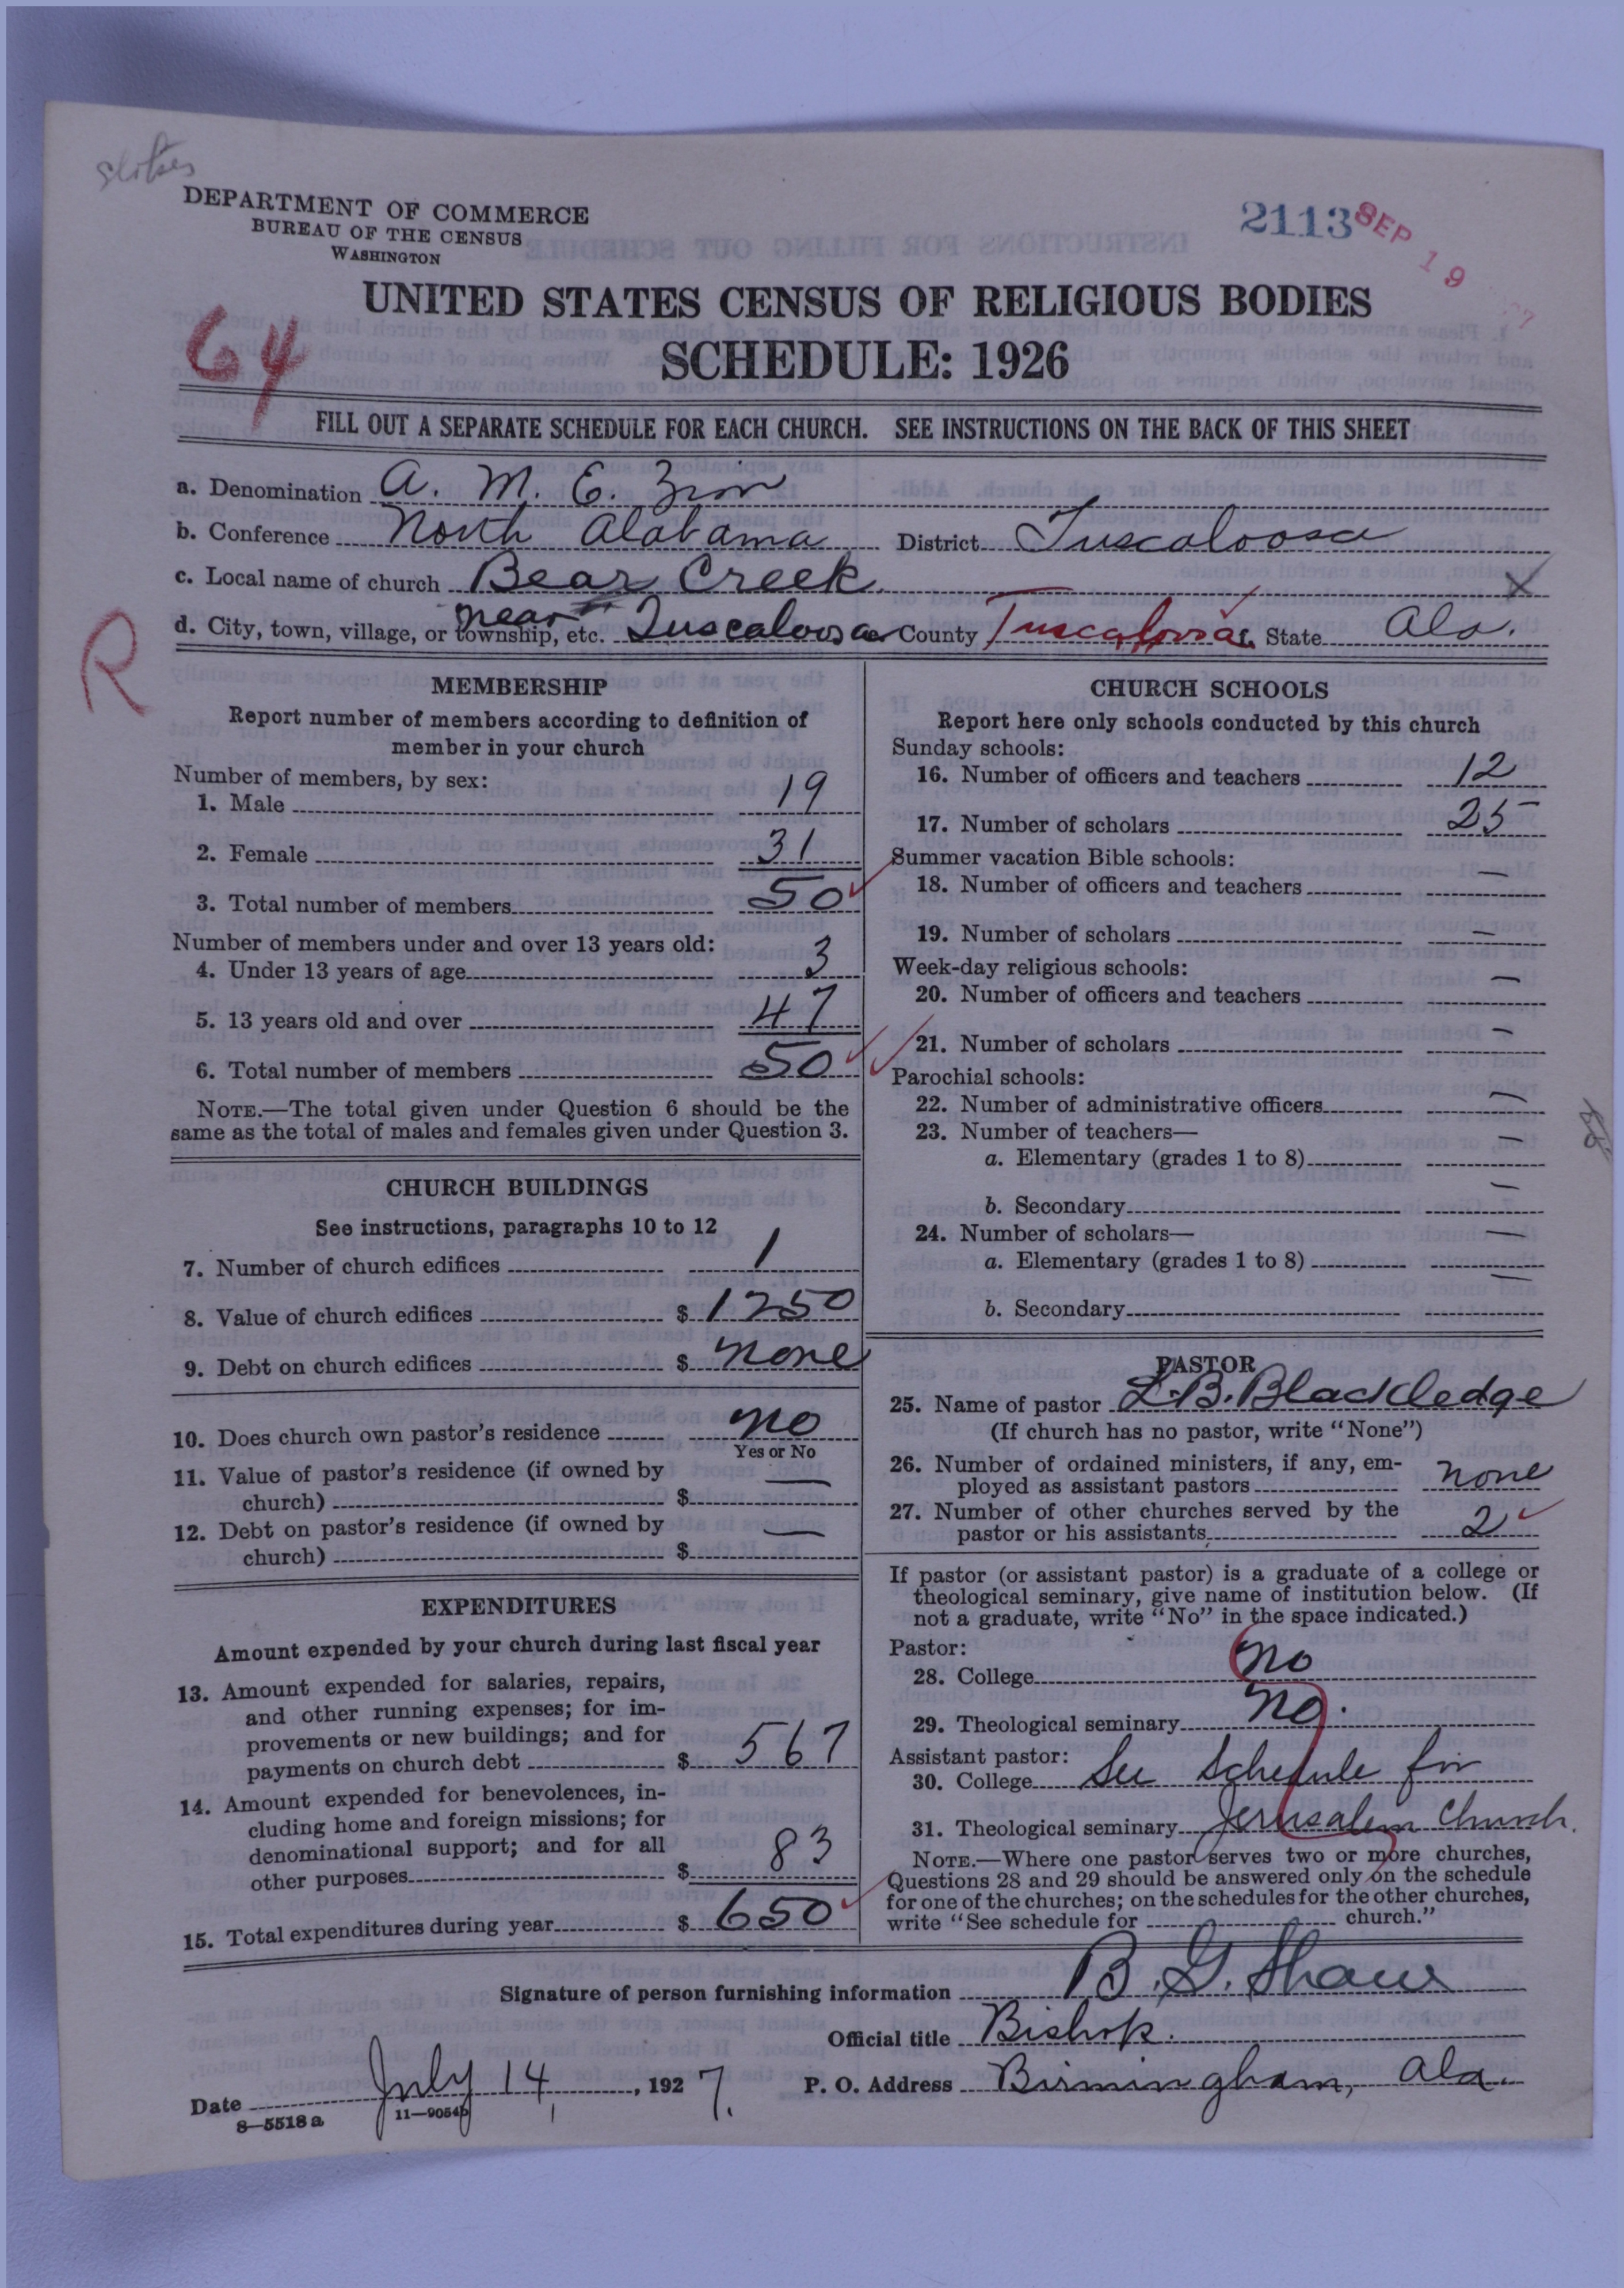 DEPARTMENT OF COMMERCE
BUREAU OF THE CENSUS
WASHINGTON
2113
SEP 19
UNITED STATES CENSUS OF RELIGIOUS BODIES
64
SCHEDULE: 1926
FILL OUT A SEPARATE SCHEDULE FOR EACH CHURCH. SEE INSTRUCTIONS ON THE BACK OF THIS SHEET
a. Denomination A. M. E. Zion
b. Conference North Alabama District Tuscaloosa
c. Local name of church Bear Creek X
R
d. City, town, village, or township, etc. near Tuscaloosa County Tuscaloosa State Ala.
MEMBERSHIP
Report number of members according to definition of
member in your church
Number of members, by sex:
1. Male 19
2. Female 31
3. Total number of members 50
Number of members under and over 13 years old:
4. Under 13 years of age 3
5. 13 years old and over 47
6. Total number of members 50
NOTE.—The total given under Question 6 should be the
same as the total of males and females given under Question 3.
CHURCH BUILDINGS
See instructions, paragraphs 10 to 12
7. Number of church edifices 1
8. Value of church edifices $ 1250
9. Debt on church edifices $ none
10. Does church own pastor's residence no
Yes or No
11. Value of pastor's residence (if owned by
church) $ —
12. Debt on pastor's residence (if owned by
church) $ —
EXPENDITURES
Amount expended by your church during last fiscal year
13. Amount expended for salaries, repairs,
and other running expenses; for im-
provements or new buildings; and for
payments on church debt $ 567
14. Amount expended for benevolences, in-
cluding home and foreign missions; for
denominational support; and for all
other purposes $ 83
15. Total expenditures during year $ 650
CHURCH SCHOOLS
Report here only schools conducted by this church
Sunday schools:
16. Number of officers and teachers 12
17. Number of scholars 25
Summer vacation Bible schools:
18. Number of officers and teachers —
19. Number of scholars —
Week-day religious schools:
20. Number of officers and teachers —
21. Number of scholars —
Parochial schools:
22. Number of administrative officers —
23. Number of teachers— —
a. Elementary (grades 1 to 8)
b. Secondary —
24. Number of scholars— —
a. Elementary (grades 1 to 8)
b. Secondary —
PASTOR
25. Name of pastor L. B. Blackledge
(If church has no pastor, write "None")
26. Number of ordained ministers, if any, em-
ployed as assistant pastors none
27. Number of other churches served by the
pastor or his assistants 2
If pastor (or assistant pastor) is a graduate of a college or
theological seminary, give name of institution below. (If
not a graduate, write "No" in the space indicated.)
Pastor:
28. College no
29. Theological seminary no.
Assistant pastor:
30. College See Schedule for
31. Theological seminary Jerusalem Church.
NOTE.—Where one pastor serves two or more churches,
Questions 28 and 29 should be answered only on the schedule
for one of the churches; on the schedules for the other churches,
write "See schedule for church."
Signature of person furnishing information B. G. Shaw
Official title Bishop.
Date July 14, 1927. P. O. Address Birmingham, Ala.
8—5518a 11—9054b